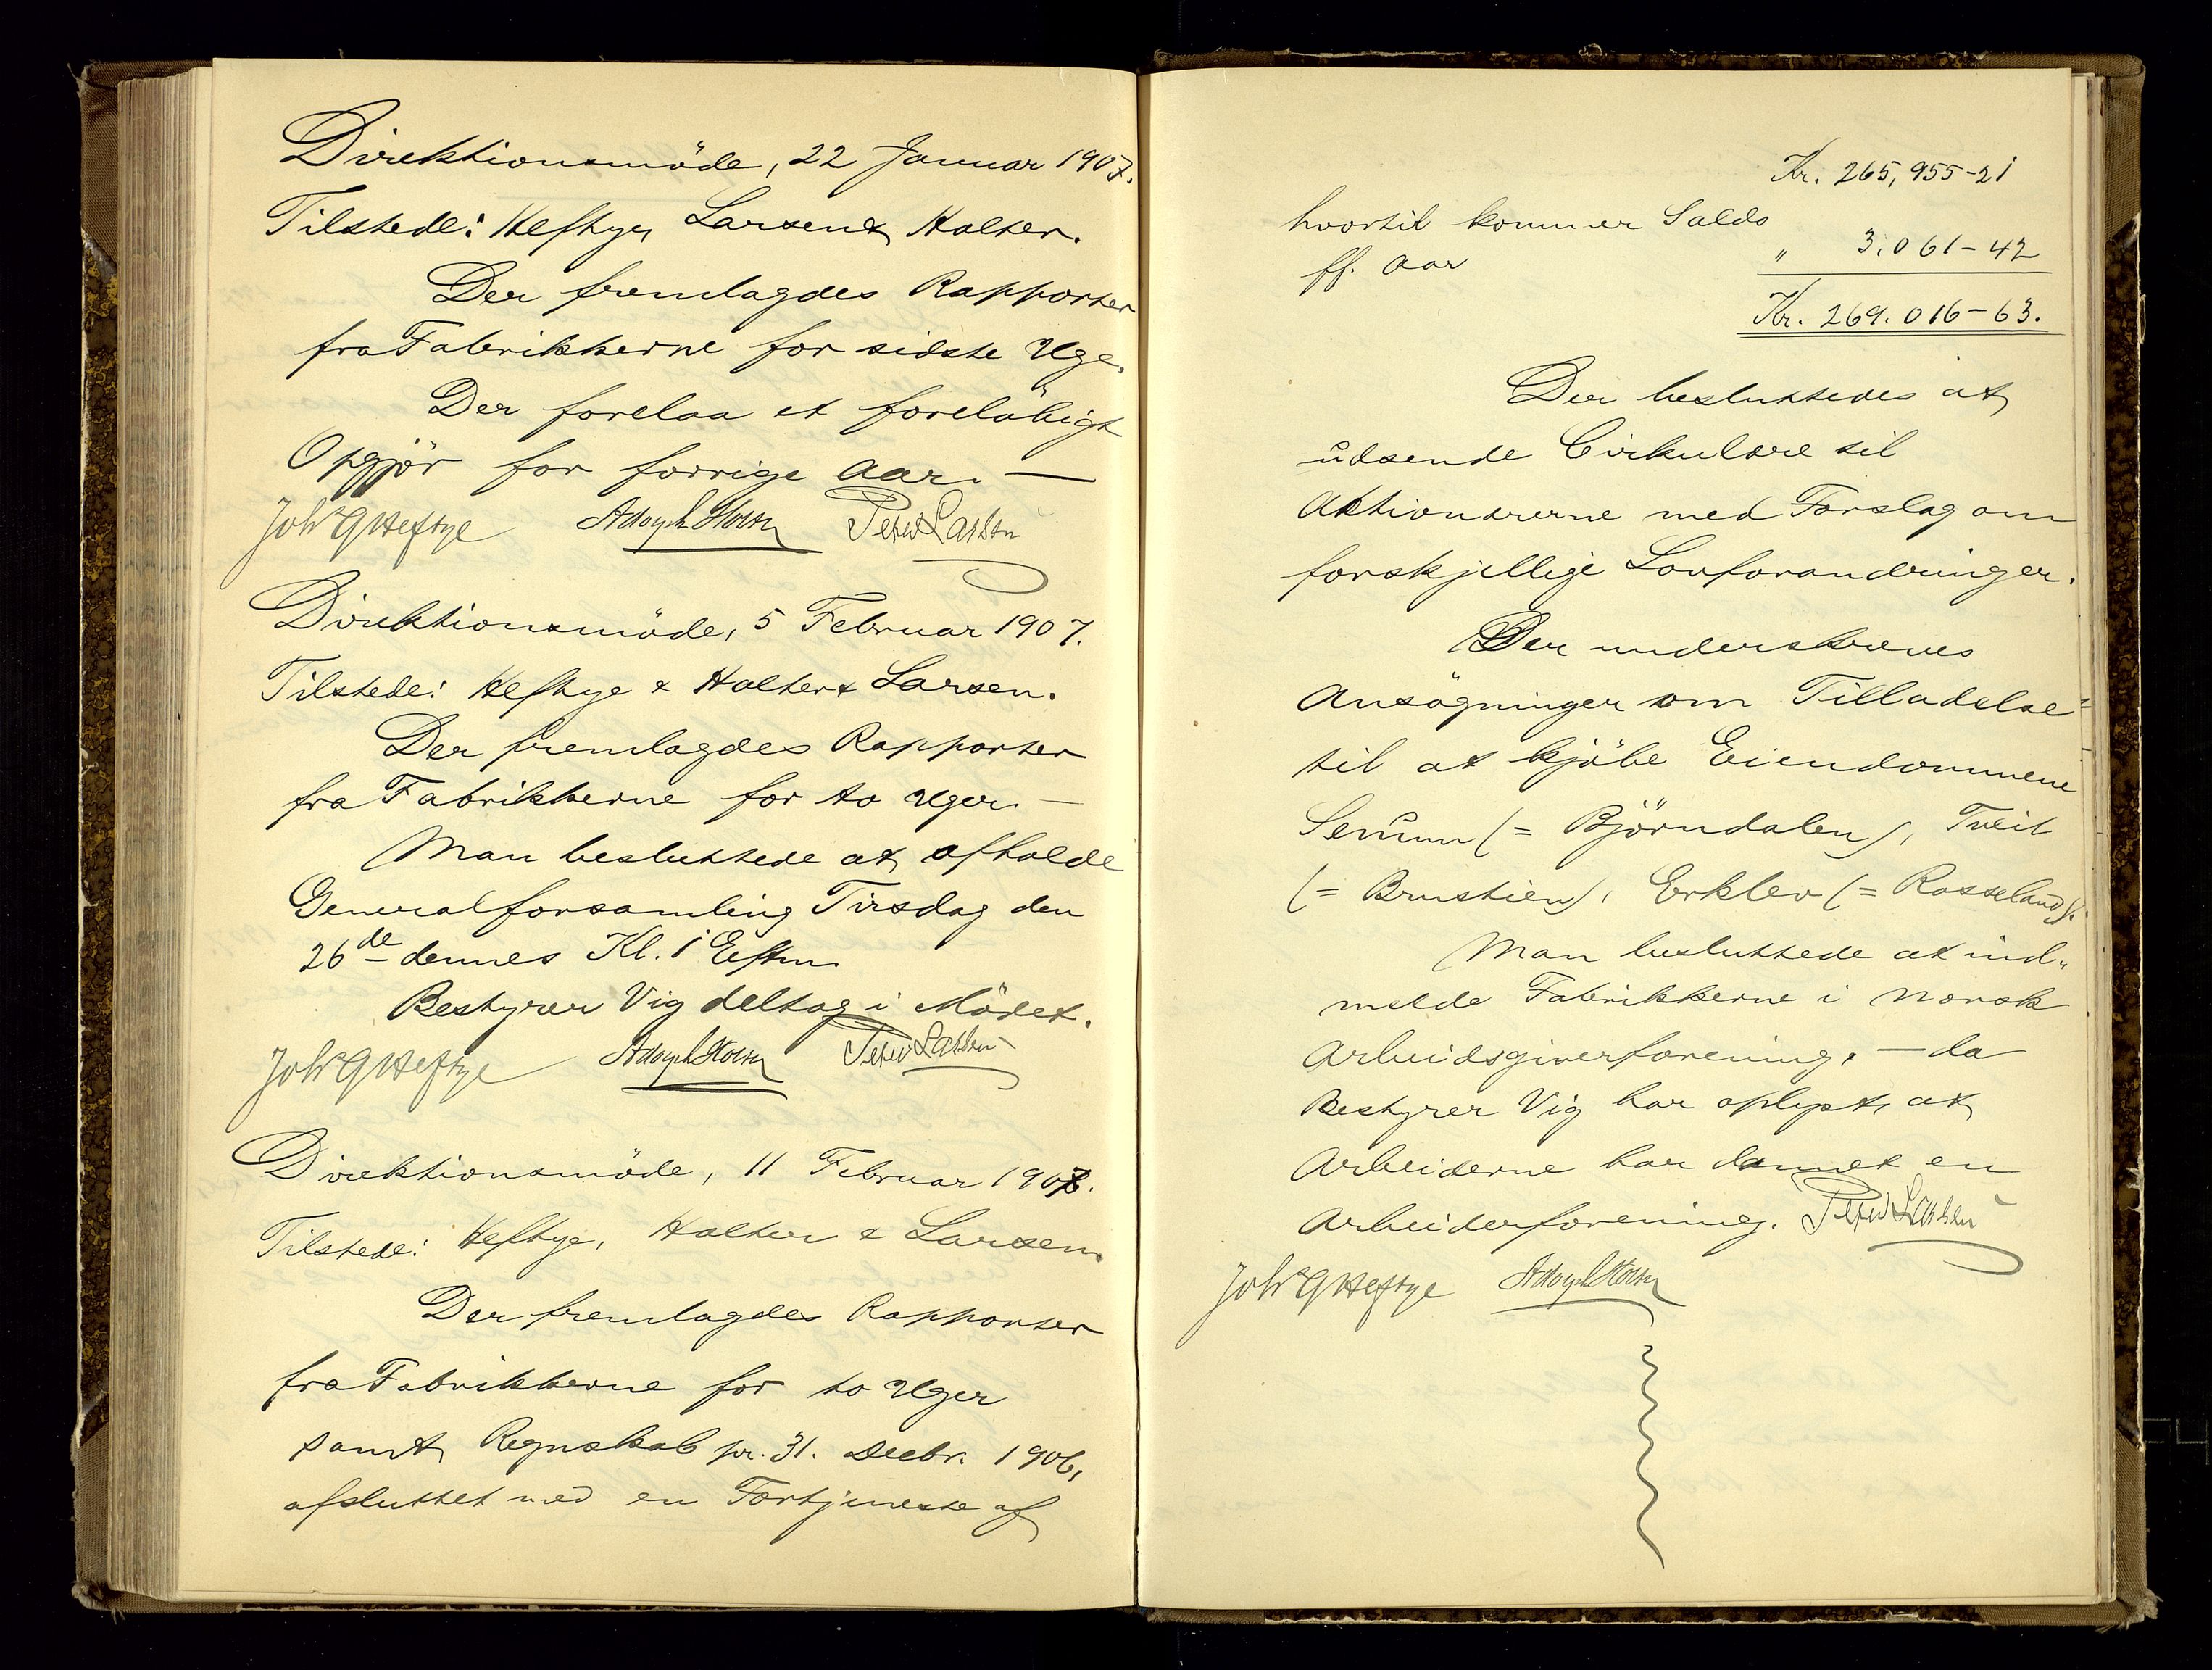 Direktionsmöde, 22 Januar 1907.
Tilstede: Heftye, Larsen & Holter.
Der fremlagdes Rapporter
fra Fabrikkerne for sidste Uge.
Der forelaa et foreløbigt
Opgjör for forrige Aar. —
Joh⁠s G Heftye Adolph Holter Peter Larsen
Direktionsmöde, 5 Februar 1907.
Tilstede: Heftye & Holter & Larsen.
Der fremlagdes Rapporter
fra Fabrikkerne for to Uger. —
Man besluttede at afholde
Generalforsamling Tirsdag den
26de dennes Kl. 1 Eftm.
Bestyrer Vig deltog i Mödet.
Joh⁠s G Heftye Adolph Holter Peter Larsen
Direktionsmöde, 11 Februar 1907.
Tilstede: Heftye, Holter & Larsen.
Der fremlagdes Rapporter
fra Fabrikkerne for to Uger
samt Regnskab pr. 31. Decbr. 1906,
afsluttet med en Fortjeneste af
Kr. 265,955-21
hvortil kommer Saldo
ff. Aar " 3.061-42
Kr. 269.016-63.
Der besluttedes at
udsende Cirkulære til
Aktionærerne med Forslag om
forskjellige Lovforandringer.
Der underskreves
Ansögninger om Tilladelse
til at kjöbe Eiendommene
(= Björndalen), Tveit
(= Brustien), Erklev (= Rosseland).
Man besluttede at ind-
melde Fabrikkerne i Norsk
Arbeidsgiverforening, — da
Bestyrer Vig har oplyst, at
Arbeiderne har dannet en
Arbeiderforening. Peter Larsen
Joh⁠s G Heftye Adolph Holter